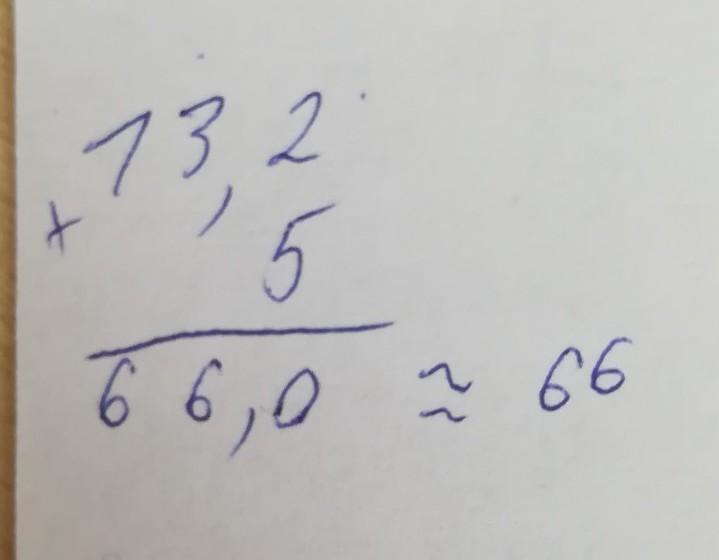 13,2
× 5
66,0 ≈ 66